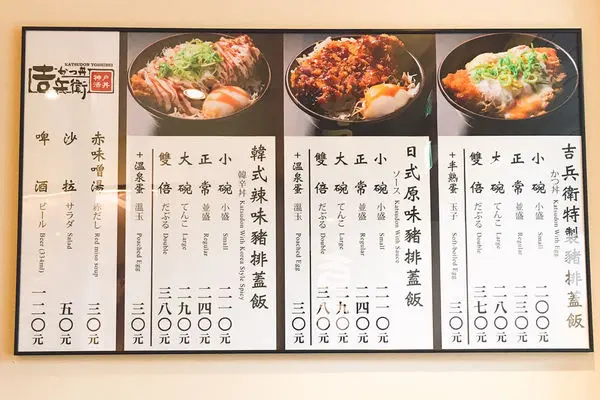 吉兵衛特製豬排蓋飯
かつ丼 Katsudon With Egg
小碗 小盛 Small 二〇〇元
正常 並盛 Regular 二三〇元
大碗 てんこ Large 二八〇元
雙倍 だぶる Double 三七〇元
+半熟蛋 玉子 Soft-boiled Egg 三〇元
日式原味豬排蓋飯
ソース Katsudon With Sauce
小碗 小盛 Small 二一〇元
正常 並盛 Regular 二四〇元
大碗 てんこ Large 二九〇元
雙倍 だぶる Double 三八〇元
+溫泉蛋 温玉 Poached Egg 三〇元
韓式辣味豬排蓋飯
韓辛丼 Katsudon With Korea Style Spicy
小碗 小盛 Small 二一〇元
正常 並盛 Regular 二四〇元
大碗 てんこ Large 二九〇元
雙倍 だぶる Double 三八〇元
+溫泉蛋 温玉 Poached Egg 三〇元
KATSUDON YOSHIBEI
かつ丼
吉兵衛
神戸
赤味噌湯 赤だし Red miso soup 三〇元
沙拉 サラダ Salad 五〇元
啤酒 ビール Beer (334ml) 一二〇元